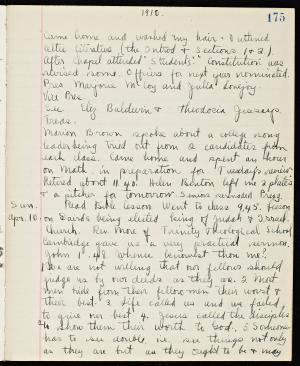 1910.
175
Came home and washed my hair. Outlined
after Literature (the Introd & Sections 1 & 2).
After chapel attended "Students'" Constitution was
revised some. Officers for next year nominated.
Pres. Marjorie McCoy and Julia Lovejoy.
Vice Pres.
Sec Eliz Baldwin & Theodosia Jessup
Treas.
Marion Brown spoke about a college song
leader being tried out from 2 candidates from
each class. Came home and spent an hour
on Math. in preparation for Tuesday's review
Retired about 11.40. Helen left me 2 plates
& a pitcher for tomorrow. Seniors serenaded Pres.
Sun. Read Bible lesson. Went to class 9.45. Lesson
Apr. 10. on David's being elected king of Judah & Israel.
Church. Rev. More of Trinity Theological School
Cambridge gave us a very practical sermon.
John 1:48. Whence knowest thou me?
1 We are not willing that our fellows should
judge us by our deeds as they are. 2 Most
men tell from their fellowmen their worst &
their best. 3 Life called us and we failed
to give our best. 4. Jesus called the disciples
to show them their worth to God. 5 Someone
has to see double, i.e., see things not only
as they are but as they ought to be & may